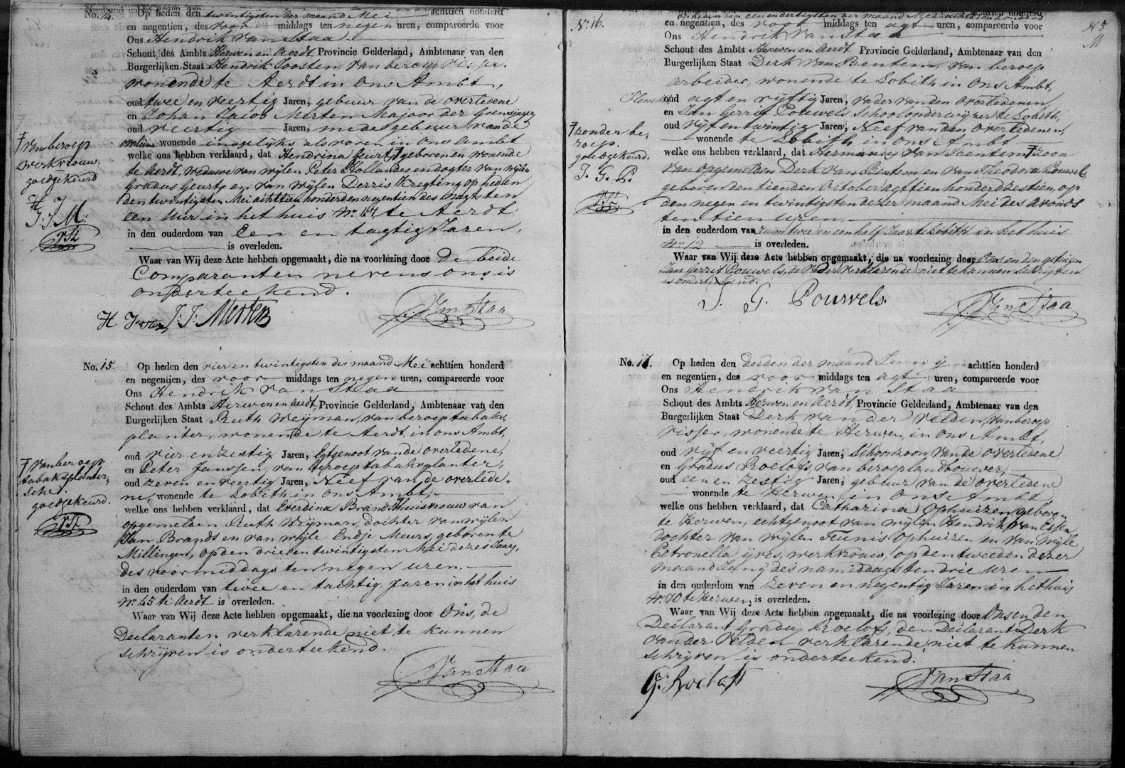 No. 14. Op heden den twintigsten der maand Mei achttien honderd
en negentien, des voor middags ten negen uren, compareerde voor
Ons Hendrik van Staa
Schout des Ambts Herwen en Aerdt, Provincie Gelderland, Ambtenaar van den
Burgerlijken Staat Hendrik Joosten van beroep
wonende te Aerdt in ons Ambt,
oud twee en veertig Jaren, gebuur van de overledene
en Johan Jacob Merten Majoor der
oud veertig Jaren, mede gebuur van de
overledene wonende insgelijks als voren in ons Ambt
welke ons hebben verklaard, dat Hendrina Geurts geboren en wonende
te Aerdt, weduwe van wijlen Peter Hollander en dogter van wijlen
Gradus Geurts en van wijlen Derris op heden
den twintigsten Mei achttien honderd en negentien des
een uur in het huis No. te Aerdt
in den ouderdom van Een en tagtig Jaren,
is overleden.
Waar van Wij deze Acte hebben opgemaakt, die na voorlezing door De beide
Comparanten nevens ons is
onderteekend.
H J J.J. Merten van Staa
van beroep
werkvrouw
goedgekeurd
H J
J.J.M.
VSt
No. 15. Op heden den vier en twintigsten des maand Mei achttien honderd
en negentien, des voor middags ten negen uren, compareerde voor
Ons Hendrik van Staa
Schout des Ambts Herwen en Aerdt, Provincie Gelderland, Ambtenaar van den
Burgerlijken Staat Ruth Weijman, van beroep tabaks
planter, wonende te Aerdt in ons Ambt,
oud vier en zestig Jaren, Egtgenoot van de overledene,
en Peter Janssen van beroep tabakplanter,
oud zeven en veertig Jaren, Neef van de overlede-
ne, wonende te Lobith in ons Ambt,
welke ons hebben verklaard, dat Everdina Brands huisvrouw van
opgemelden Ruth Weijman dochter van wijlen
Jan Brands en van wijle Endje Meurs, geboren te
Millingen, op den drie en twintigsten Mei dezes Jaars,
des voormiddags ten negen uren
in den ouderdom van twee en tachtig Jaren in het huis
No. 45 te Aerdt is overleden.
Waar van Wij deze Acte hebben opgemaakt, die na voorlezing door Ons, de
Declaranten verklarende niet te kunnen
schrijven is onderteekend.
van Staa
van beroep
tabaksplanter-
sche
goedgekeurd.
VSt
No. 16. Op heden den een en dertigsten der maand Mei achttien honderd
en negentien, des voor middags ten agt uren, compareerde voor
Ons Hendrik van Staa
Schout des Ambts Herwen en Aerdt, Provincie Gelderland, Ambtenaar van den
Burgerlijken Staat Derk van Bentem, van beroep
arbeider, wonende te Lobith in ons Ambt,
oud agt en vijftig Jaren, vader van den overledenen
en Jan Gerrit Pouwels Schoolonderwijzer te Lobith,
oud vijf en twintig Jaren, Neef van den overledenen,
wonende te Lobith in ons Ambt
welke ons hebben verklaard, dat Hermanus van Bentem zoon
van opgemelden Derk van Bentem en van Theodora Pouwels
geboren den tienden October agttien honderd zestien, op
den negen en twintigsten dezer maand Mei des avonds
ten tien uren
in den ouderdom van ruim twee en een half Jaar te Lobith in het huis
No. 12 is overleden.
Waar van Wij deze Acte hebben opgemaakt, die na voorlezing door Ons en den getuigen
Jan Gerrit Pouwels, de Vader verklarende niet te kunnen schrijven
is onderteekend.
J. G. Pouwels van Staa
zonder be-
roep.
goedgekeurd.
J. G. P.
VSt
No. 17. Op heden den derden der maand Junij achttien honderd
en negentien, des voor middags ten agt uren, compareerde voor
Ons Hendrik van Staa
Schout des Ambts Herwen en Aerdt, Provincie Gelderland, Ambtenaar van den
Burgerlijken Staat Derk van der Velden, van beroep
visser, wonende te Herwen, in ons Ambt,
oud vijf en veertig Jaren, Schoonzoon van de overledene
en Gradus Roelofs van beroep landbouwer,
oud een en zestig Jaren, gebuur van de overledene
wonende te Herwen in ons Ambt,
welke ons hebben verklaard, dat Catharina Ophuizen geboren
te Herwen, echtgenoot van wijlen Hendrik van
dochter van wijlen Teunis Ophuizen en van wijle
Petronella werkvrouw, op den tweeden dezer
maand Junij des namiddags ten drie uren
in den ouderdom van zeven en negentig Jaren in het huis
No. 70 te Herwen, is overleden.
Waar van Wij deze Acte hebben opgemaakt, die na voorlezing door Ons en den
Declarant Gradus Roelofs, den Declarant Derk
van der Velden verklarende niet te kunnen
schrijven is onderteekend.
G: Roelofs van Staa